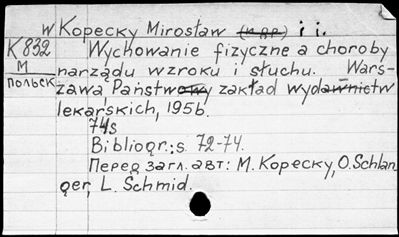 w Kopecky Mirosław (и др.) i i.
K 832 Wychowanie fizyczne a choroby
M narządu wzroku i słuchu. Wars-
польск zawa, Państwowy zakład wydawnictw
lekarskich, 1956.
74s
Bibliogr.: s. 72-74.
Перед загл. авт: M. Kopecky, O. Schlan
ger, L. Schmid.